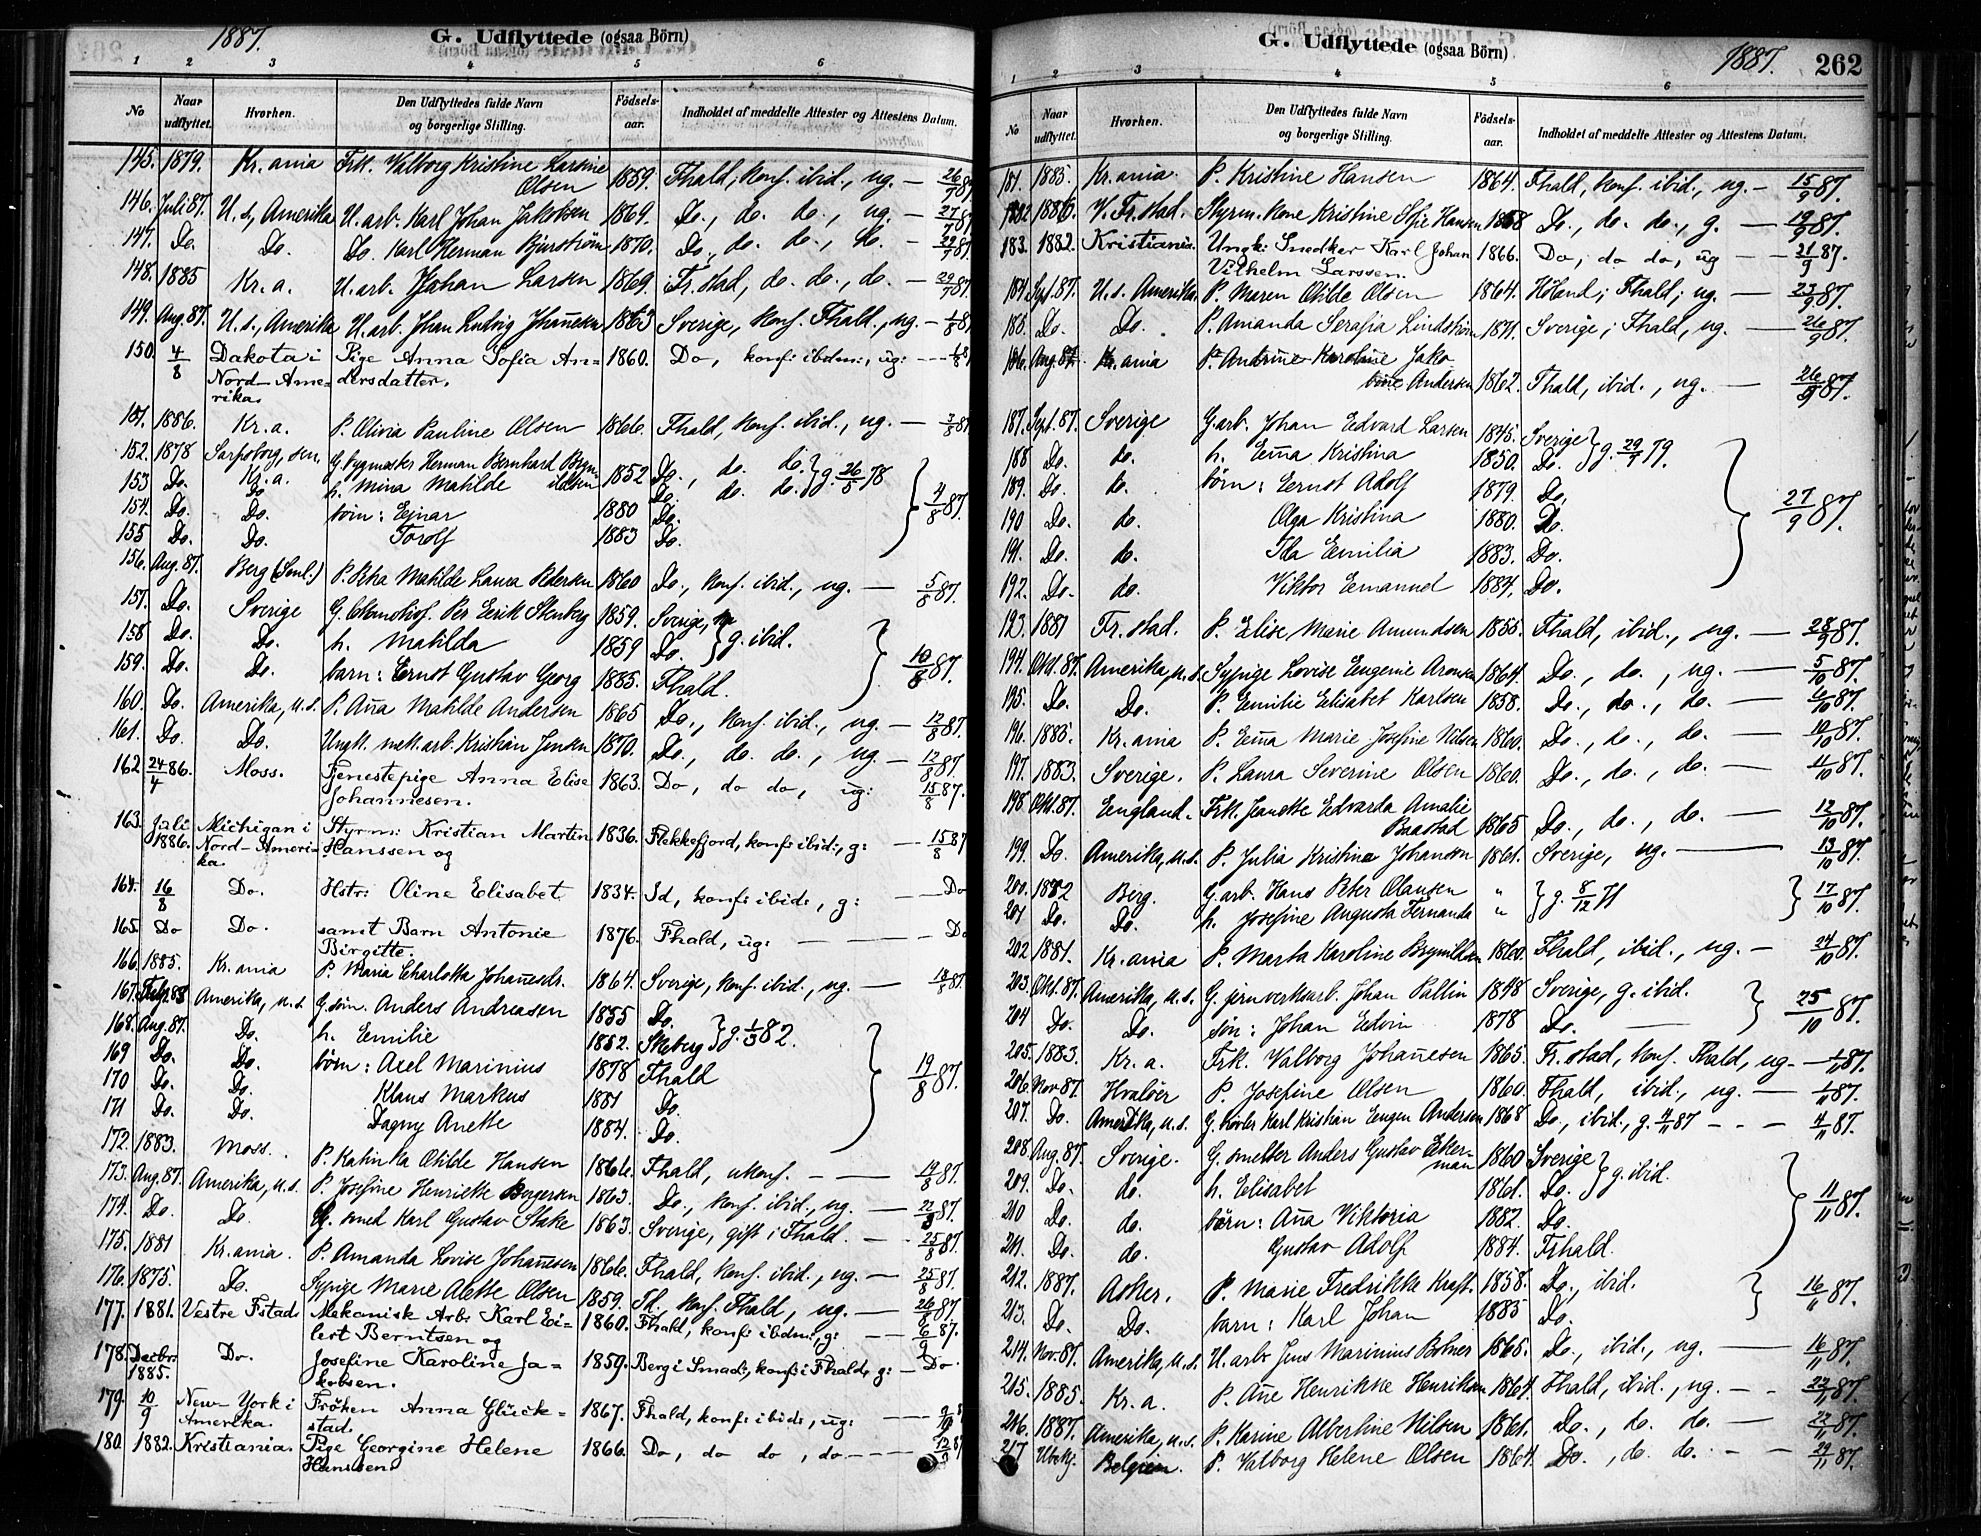 1887.
G. Udflyttede (ogsaa Börn)
1 2 3 4 5 6
No
Naar udflyttet.
Hvorhen.
Den Udflyttedes fulde Navn og borgerlige Stilling.
Födsels-aar.
Indholdet af meddelte Attester og Attestens Datum.
145. 1879. Kr.ania Frk. Valborg Kristine Larsine
Olsen 1859. Fhald, konf. ibid., ug. — 26/7 87.
146. Juli 87. U.s, Amerika U. arb. Karl Johan Jakobsen 1869. Do., do. do., ug. — 27/7 87.
147. Do. Do. Do. Karl Herman 1870. Do., do. do., do. — 29/7 87.
148. 1885 Kr.a. U. arb. Johan Larsen 1869. Fr.stad, do. do., do. — 29/7 87.
149. Aug. 87. U.s., Amerika U. arb. Johan Ludvig 1863 Sverige, konf. Fhald., ug. — 1/8 87
150. 4/8 Dakota i Pige Anna Sofia An- 1860. Do, konf: ibdm:, ug: — 4/8 87
Nord-Ame- dersdatter.
rika.
151. 1886. Kr.a. P. Olivia Pauline Olsen 1866. Fhald, konf. ibid., ug. — 3/8 87
152. 1878 Sarpsborg, sen. G. bygmester Herman Bernhard Bryn- 1852 Do., do. do. } g. 26/5 78
153 Do. Kr.a. h. Mina Matilde ildsen Do. do. do.
154. Do. Do. börn: Ejnar 1880 Do. } 4/8 87.
155 Do. Do. Torolf 1883 Do.
156. Aug. 87. Berg (Sml.) P. Petra Matilde Laura Pedersen 1860 Do., konf. ibid., ug. — 5/8 87.
157. Do. Sverige G. Per Eerik Stenberg 1859. Sverige,
158 Do. Do. h. Matilda 1859 Do. } g. ibid. } 10/8 87.
159. Do. Do. barn: Ernst Gustav Georg 1885. Fhald.
160. Do. Amerika, u.s. P. Aña Matilde Andersen 1865 Do., konf. ibid., ug. — 12/8 87.
161. Do. Do. Ungk. mek. arb. Kristian Jensen 1870. Do., do. do., ug. — 12/8 87.
162. 24/4 86. Moss. Tjenestepige Anna Elise 1863. Do, do do, ug: 15/8 87.
Johannesen.
163. Juli Michigan i Styrm: Kristian Martin 1836. Flekkefjord, konf: ibid:, g: — 15/8 87
1886. Nord-Ameri- Hanssen og
ka.
164. 16/8 Do. Hstr: Oline Elisabet 1834. Id, konf: ibid:, g: — Do
165. Do Do. samt Barn Antonie 1876. Fhald, ug: — Do
Birgitte.
166. 1885. Kr.ania P. Maria Charlotta Johanesdr. 1864. Sverige, konf. ibid., ug. — 18/8 87.
167. Amerika, u.s. G. söm. Anders Andreasen 1855 Do.
168. Aug. 87. Do. h. Emilie 1852. Skeberg } g. 1/3 82.
169 Do. Do. börn: Axel Marinius 1878 Fhald } 19/8 87.
170 Do. Do. Klaus Markus 1881 Do.
171 Do. Do. Dagny Anette 1884. Do.
172. 1883. Moss. P. Katinka Otilde Hansen 1866. Fhald, ukonf. — 19/8 87.
173. Aug. 87. Amerika, u.s. P. Josefine Henriette Borgersen 1863. Do., konf. ibid., ug. — 22/8 87.
174. Do. Do. G. smed Karl Gustav Stake 1863. Sverige, gift i Fhald. — 25/8 87.
175. 1881 Kr.ania. P. Amanda Lovise Johañesen 1866. Fhald, konf. ibid., ug. — 25/8 87.
176. 1875. Do. Sypige Marie Alette Olsen 1859. Th., konf. Fhald, ug. — 26/8 87
177. 1881. Vestre Fstad Mekanisk Arb: Karl Ei- 1860. Fhald, konf: ibdm:, g: — 6/9 87.
lert Berntsen og
178. Decbr: Do. Josefine Karoline Ja- 1859. Berg i Smaal:, konf: i Fhald, g: — Do.
1885. kobsen.
179. 10/9 New-York i Fröken Anna Glück- 1867. Fhald, konf: ibid:, ug: —
Amerika. stad.
180. 1882. Kristiania. Pige Georgine Helene 1866. Do, do do, do — 12/9 87
Hanssen.
G. Udflyttede (ogsaa Börn)
1887.
262
1 2 3 4 5 6
No
Naar udflyttet.
Hvorhen.
Den Udflyttedes fulde Navn og borgerlige Stilling.
Födsels-aar.
Indholdet af meddelte Attester og Attestens Datum.
181. 1885. Kr.ania. P. Kristine Hansen 1864. Fhald, konf. ibid., ug. — 15/9 87.
182 1886. V. Fr.stad. Styrm. kone Kristine Sofie Hansen 1858 Do., do. do., g. — 19/9 87.
183. 1882. Kristiania. Ungk: Snedker Karl Johan 1866. Do, do do, ug — 21/9 87.
Vilhelm Larssen.
184. Sept. 87. U.s. Amerika. P. Maren Otilde Olsen 1864. Höland; Fhald; ug. — 23/9 87.
185. Do. Do. P. Amanda Serafia Lindström 1871. Sverige; Fhald, ug. — 26/9 87.
186. Aug. 87. Kr.ania P. Antrine Karoline Jako
bine Andersen 1862. Fhald, ibid., ug. — 26/9 87.
187. Sept. 87. Sverige G. arb. Johan Edvard Larsen 1845. Sverige
188 Do. do. h. Ema Kristina 1850. Do. } g. 29/9 79.
189. Do. do. börn: Ernst Adolf 1879. Do. } 27/9 87.
190 Do. do. Olga Kristina 1880. Do.
191. Do. do. Ida Emilia 1883. Do.
192. Do. do. Viktor Emanuel 1884. Do.
193. 1881 Fr.stad. P. Elise Marie Amundsen 1855. Fhald, ibid., ug. — 28/9 87.
194. Okt. 87. Amerika, u.s. Sypige Lovise Eugenie Aronsen 1864. Do., do., ug. — 5/10 87.
195. Do. Do. P. Emilie Elisabet Karlsen 1858. Do., do., do. — 6/10 87.
196. 1885. Kr.ania P. Ema Marie Josefine Nilsen 1860. Do., do., do. — 10/10 87.
197. 1883. Sverige. P. Laura Severine Olsen 1860. Do., do., do. — 11/10 87.
198. Okt. 87. England. Frk. Jenette Edvarda Amalie
Baastad 1865 Do., do., do. — 12/10 87.
199. Do. Amerika, u.s. P. Julia Kristina Johanson 1861. Sverige, ug. — 13/10 87.
200. 1882 Berg. G. arb. Hans Peter Olausen " } g. 8/12 71 } 17/10 87.
201 Do. Do. h. Josefine Augusta Fernanda "
202. 1881. Kr.ania P. Marta Karoline Brynildsen 1860. Fhald, ibid., ug. — 24/10 87.
203. Okt. 87. Amerika, u.s. G. jernverksarb. Johan Pallin 1848 Sverige, g. ibid. } 25/10 87.
204 Do. Do. sön: Johan Edvin 1878 Do.
205. 1883. Kr.a. Frk. Valborg Johañesen 1865. Fr.stad, konf. Fhald, ug. — 1/11 87.
206. Nov. 87. Hvalöer P. Josefine Olsen 1860. Fhald, ibid., ug. — 1/11 87.
207. Do. Amerika, u.s. G. hövler Karl Kristian Eugen Andersen 1868 Do., ibid., g. 4/11 87 — 4/11 87.
208. Aug. 87. Sverige. G. smelter Anders Gustav Eker- 1860 Sverige
man
209. Do. do. h. Elisabet 1861. Do. } g. ibid. } 11/11 87.
210 Do. do. börn: Aña Viktoria 1882. Do.
211. Do. do. Gustav Adolf 1884. Frhald.
212. 1887. Asker. P. Marie Fredrikke Kraft. 1858. Do., ibid. } 16/11 87.
213. Do. Do. barn: Karl Johan 1885 Do.
214. Nov. 87. Amerika, u.s. U. arb. Jens Marinius 1865. Do., ibid, ug. — 16/11 87.
215. 1885. Kr.a. P. Añe Henrikke Henriksen 1864. Fhald, ibid., ug. — 22/11 87.
216. 1887. Amerika, u.s. P. Karine Albertine Nilsen 1861. Do., do. do. — 22/11 87.
217 Ubekj. Belgien. P. Valborg Helene Olsen 1864. Do., do. do. — 29/11 87.